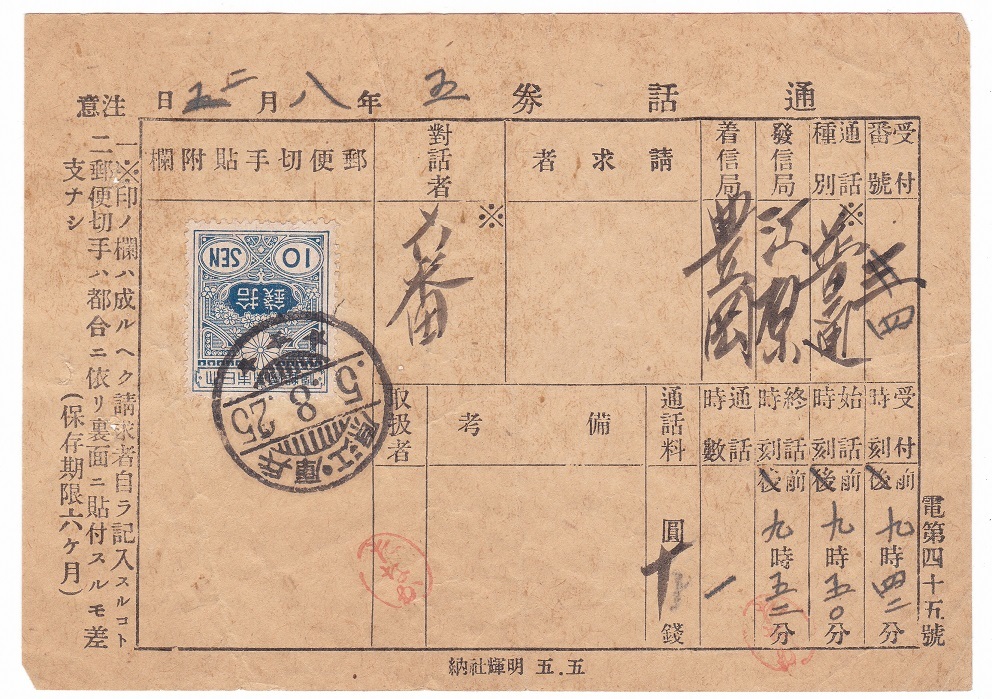 通話券 五年八月二五日
受付番號
通話種別 ※ 普通
發信局 江原
着信局 豊岡
請求者
對話者 ※ 六番
郵便切手貼附欄
受付時刻 前後 九時四二分
始話時刻 前後 九時五〇分
終話時刻 前後 九時五二分
通話時數 一
通話料 圓 十 錢
備考
取扱者
10 SEN
拾錢
兵庫・江原
5.8.25
注意
一※印ノ欄ハ成ルヘク請求者自ラ記入スルコト
二郵便切手ハ都合ニ依リ裏面ニ貼付スルモ差
支ナシ (保存期限六ケ月)
電第四十五號
五.五 明輝社納